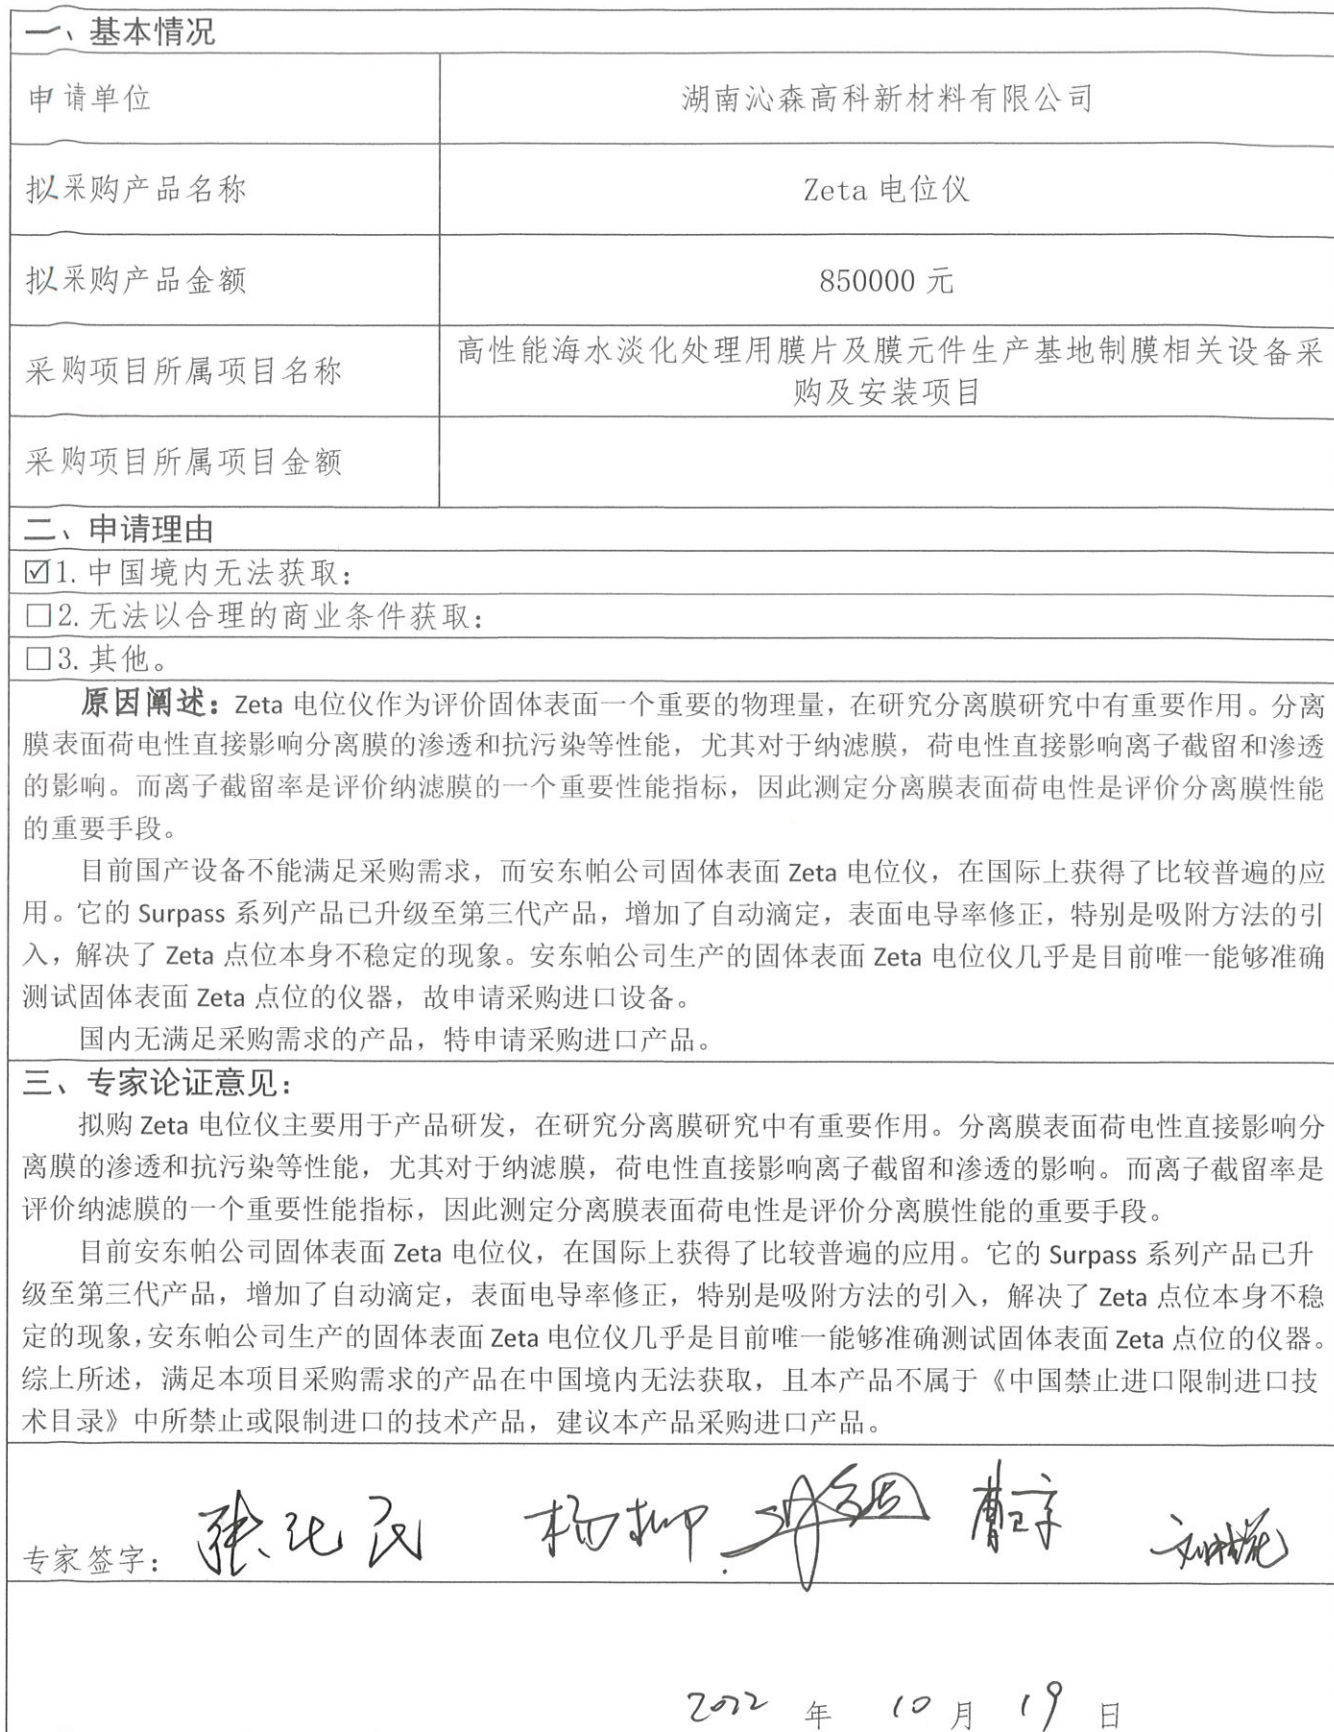 一、基本情况
申请单位
湖南沁森高科新材料有限公司
拟采购产品名称
Zeta 电位仪
拟采购产品金额
850000 元
采购项目所属项目名称
高性能海水淡化处理用膜片及膜元件生产基地制膜相关设备采
购及安装项目
采购项目所属项目金额
二、申请理由
☑1.中国境内无法获取：
□2.无法以合理的商业条件获取：
□3.其他。
原因阐述：Zeta 电位仪作为评价固体表面一个重要的物理量，在研究分离膜研究中有重要作用。分离
膜表面荷电性直接影响分离膜的渗透和抗污染等性能，尤其对于纳滤膜，荷电性直接影响离子截留和渗透
的影响。而离子截留率是评价纳滤膜的一个重要性能指标，因此测定分离膜表面荷电性是评价分离膜性能
的重要手段。
目前国产设备不能满足采购需求，而安东帕公司固体表面 Zeta 电位仪，在国际上获得了比较普遍的应
用。它的 Surpass 系列产品已升级至第三代产品，增加了自动滴定，表面电导率修正，特别是吸附方法的引
入，解决了 Zeta 点位本身不稳定的现象。安东帕公司生产的固体表面 Zeta 电位仪几乎是目前唯一能够准确
测试固体表面 Zeta 点位的仪器，故申请采购进口设备。
国内无满足采购需求的产品，特申请采购进口产品。
三、专家论证意见：
拟购 Zeta 电位仪主要用于产品研发，在研究分离膜研究中有重要作用。分离膜表面荷电性直接影响分
离膜的渗透和抗污染等性能，尤其对于纳滤膜，荷电性直接影响离子截留和渗透的影响。而离子截留率是
评价纳滤膜的一个重要性能指标，因此测定分离膜表面荷电性是评价分离膜性能的重要手段。
目前安东帕公司固体表面 Zeta 电位仪，在国际上获得了比较普遍的应用。它的 Surpass 系列产品已升
级至第三代产品，增加了自动滴定，表面电导率修正，特别是吸附方法的引入，解决了 Zeta 点位本身不稳
定的现象，安东帕公司生产的固体表面 Zeta 电位仪几乎是目前唯一能够准确测试固体表面 Zeta 点位的仪器。
综上所述，满足本项目采购需求的产品在中国境内无法获取，且本产品不属于《中国禁止进口限制进口技
术目录》中所禁止或限制进口的技术产品，建议本产品采购进口产品。
专家签字： 杨柳
2022 年 10 月 19 日